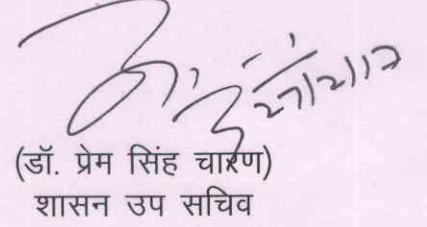 27/2/12
(डॉ. प्रेम सिंह चारण)
शासन उप सचिव